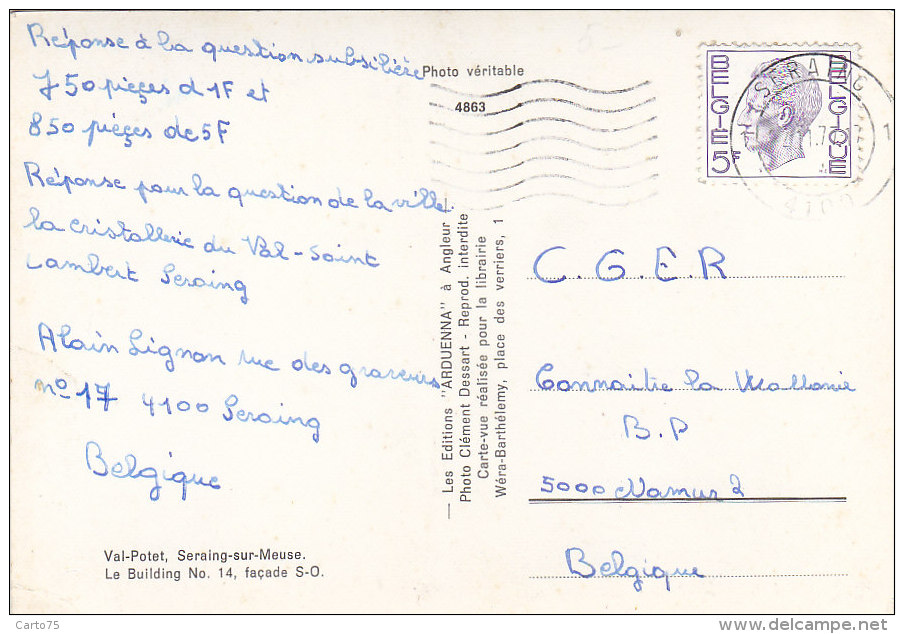 Réponse à la question subsilière
750 pièces d 1F et
850 pièces de 5F
Réponse pour la question de la ville.
la cristallerie du Val-Saint
Lambert Seraing
Alain Lignon rue des graveurs
no 17 4100 Seraing
Belgique
Val-Potet, Seraing-sur-Meuse.
Le Building No. 14, façade S-O.
Photo véritable
4863
— Les Editions "ARDUENNA" à Angleur
Photo Clément Dessart - Reprod. interdite
Carte-vue réalisée pour la librairie
Wéra-Barthélemy, place des verriers, 1
BELGIE 5F
BELGIQUE
SERAING 1
4100
C.G.E.R
Connaître la Wallonie
B.P
5000 Namur 2
Belgique
Carto75
delcampe.net